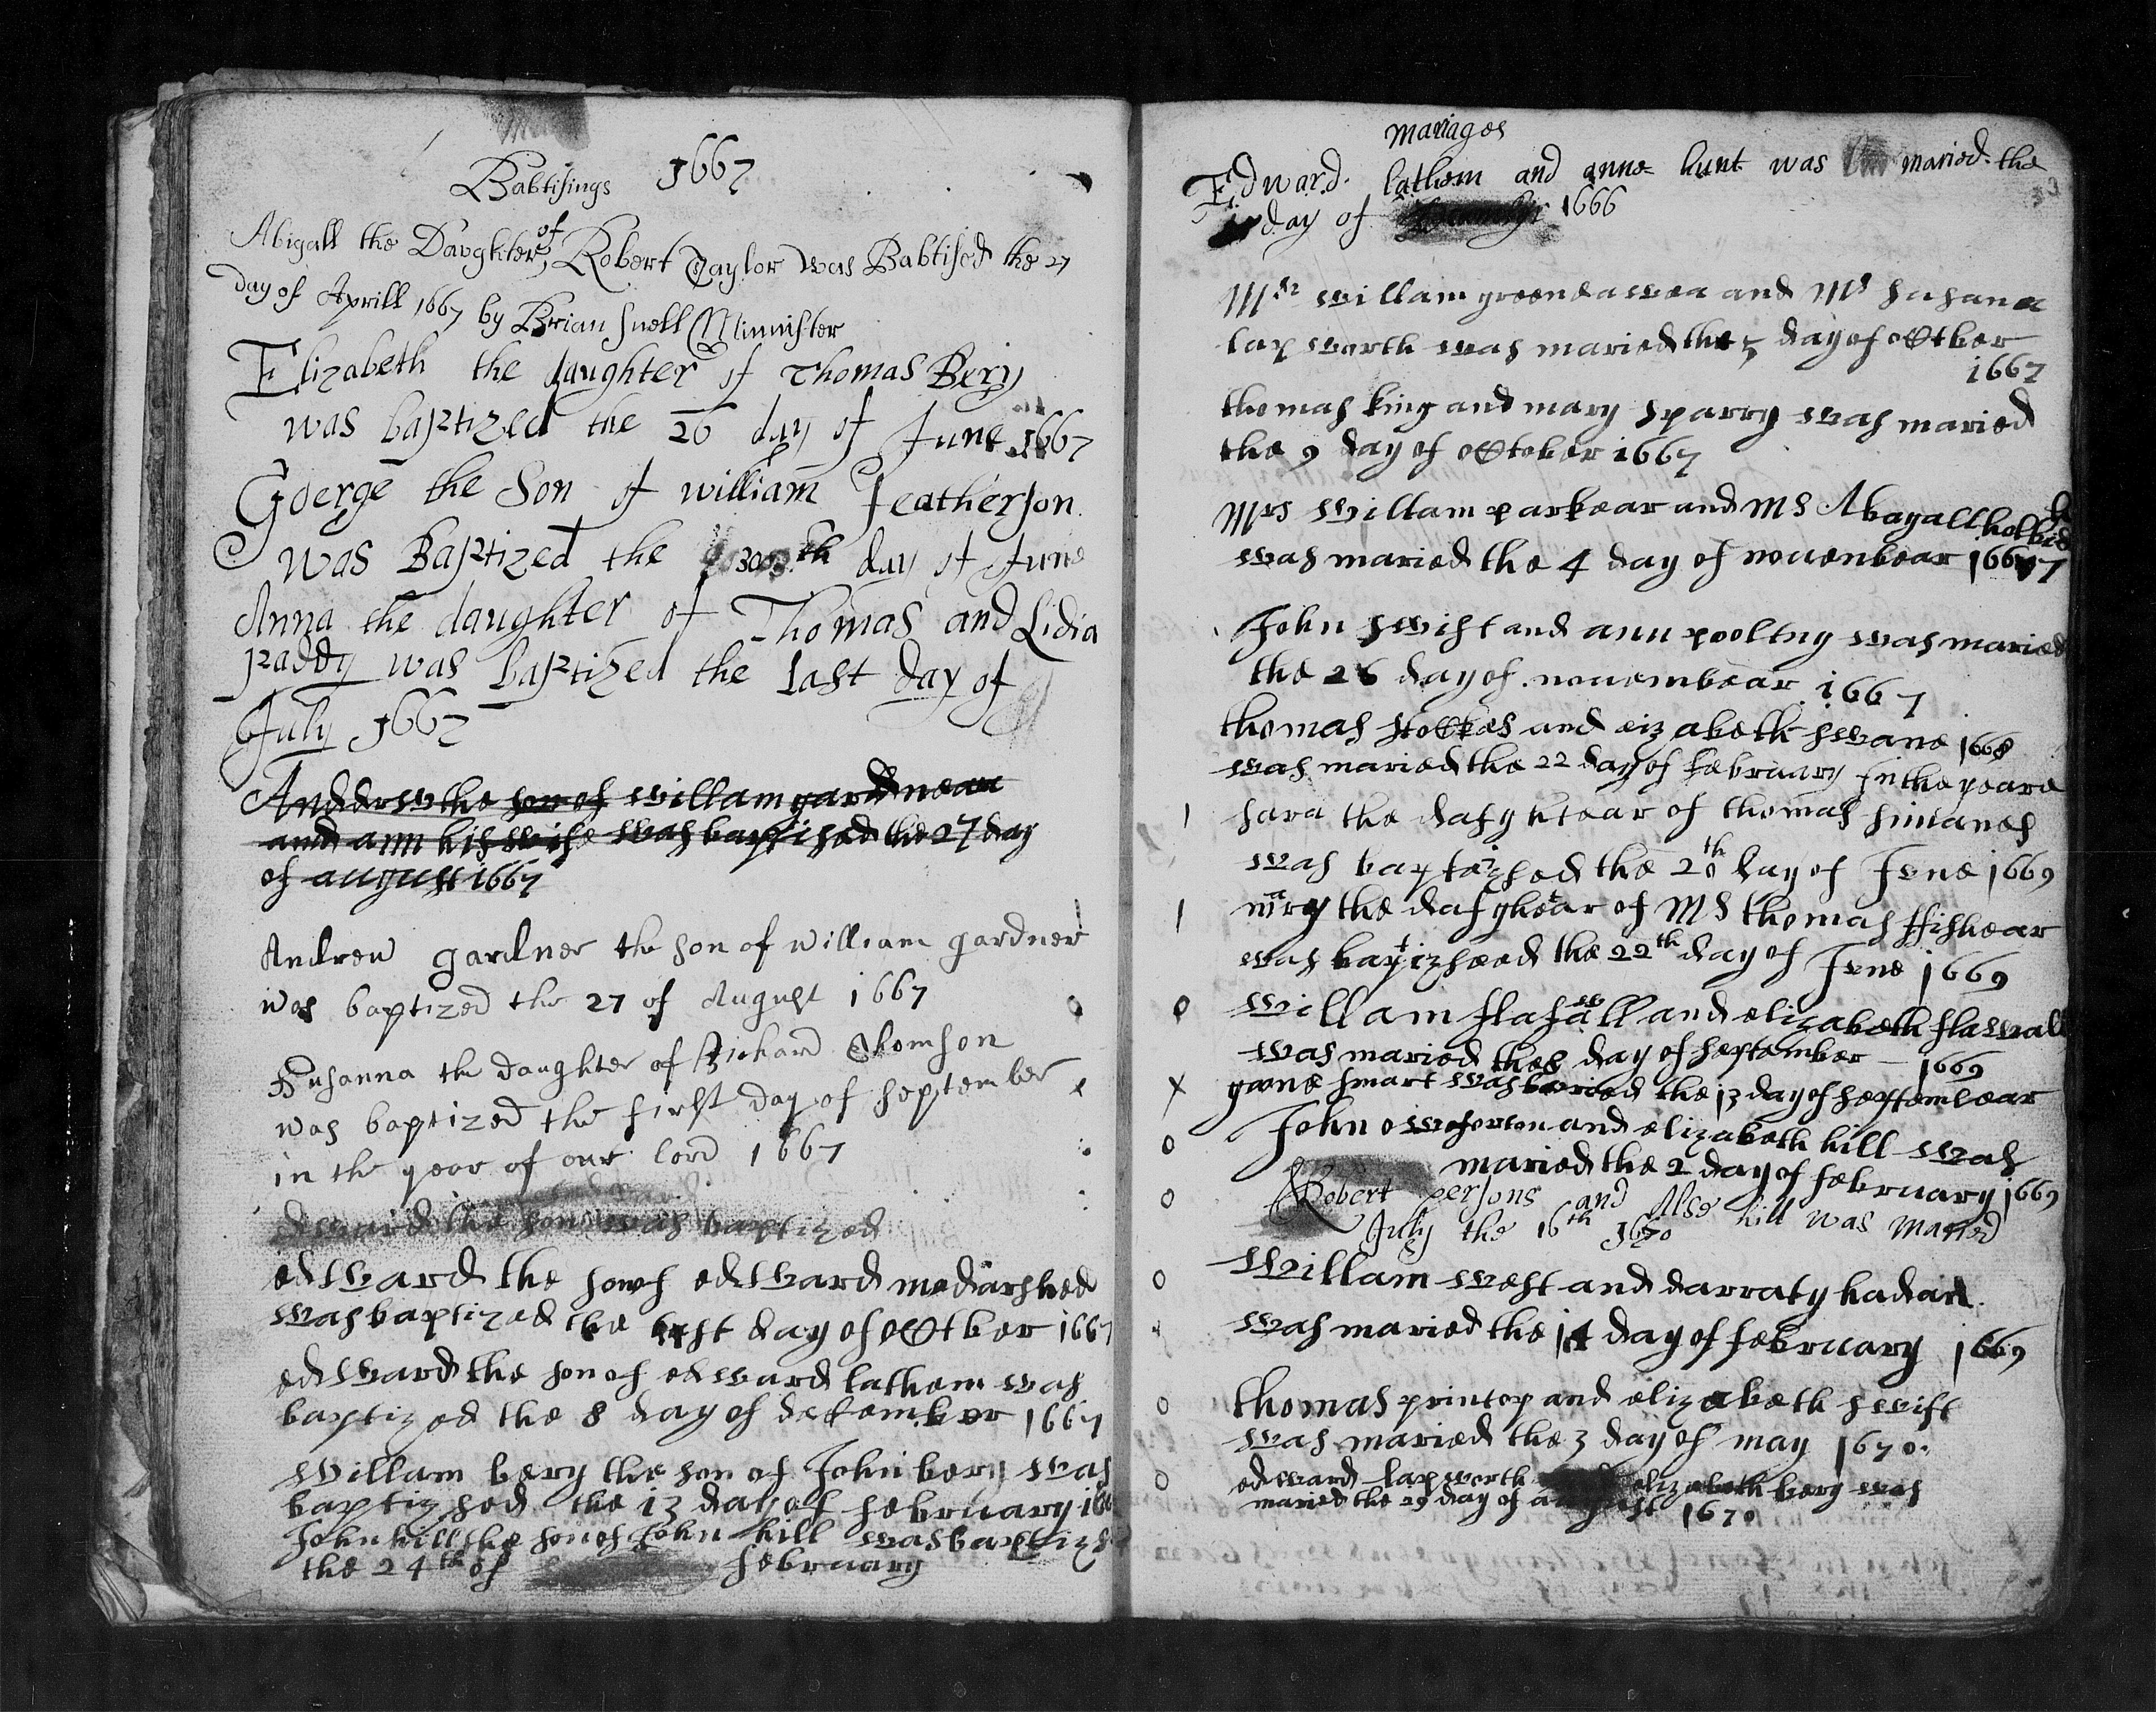 Babtisings 1667
Abigall the Daughter of Robert Taylor was Babtised the 27
day of Aprill 1667 by Brian Snell Minnister
Elizabeth the daughter of Thomas Bery
was baptized the 26 day of June 1667
Goerge the Son of william Featherson
was Baptized the 30th day of June
Anna the daughter of Thomas and Lidia
paddy was baptized the Last day of
July 1667
Andrew the son of willam gardnear
and ann his wife was baptised the 27 day
of august 1667
Andrew gardner the son of william gardner
was baptized the 27 of August 1667
Susanna the daughter of Richard Thomson
was baptized the first day of september
in the year of our lord 1667
edward the son was baptized
edward the son of edward madarshed
was baptized the day of octber 1667
edward the son of edward lathem was
baptized the 8 day of december 1667
willam bery the son of John bery was
baptizsed the 13 day of february
John hill the son of John hill was baptiz
the 24th of february
Mariages
Edward lathem and anne hunt was maried the
day of 1666
Mr willam greenawaa and Ms susana
lapworth was maried the 5 day of octber
1667
thomas king and mary sparry was maried
the 9 day of october 1667
Mrs willam parkear and MS Abagall
was maried the 4 day of nouenbear 1667
John swift and ann pooltny was maried
the 26 day of nouembear 1667
thomas stockes and eizabeth swane 1668
was maried the 22 day of february in the yeare
sara the dafyhtear of thomas simanes
was baptaizsed the 20th day of June 1669
mary the dafyhtear of MS thomas ffishear
was baptizseed the 22th day of June 1669
willam flafwall and elizabeth flawall
was maried the 8 day of september 1669
gane smart was buried the 13 day of septembear
John and elizabeth hill was
maried the 2 day of february 1669
Robert persons and Alse hill was maried
July the 16th 1670
willam west and darraty hadan
was maried the 14 day of february 1669
thomas printop and elizabeth swift
was maried the 3 day of may 1670
edward lapworth elizabeth bery was
maried the 29 day of august 1670